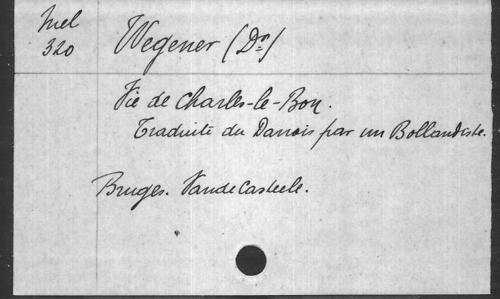 Mel
320
Wegener (Dr)
Vie de Charles-le-Bon.
Traduite du Danois par un Bollandiste.
Bruges. Vandecasteele.